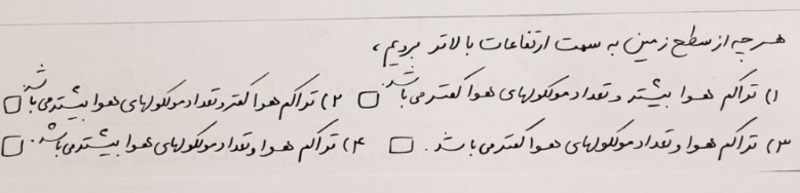 هر چه از سطح زمین به سمت ارتفاعات بالاتر برویم،
۱) تراکم هوا بیشتر و تعداد مولکولهای هوا کمتر می باشد. □ ۲) تراکم هوا کمتر و تعداد مولکولهای هوا بیشتر می باشد □
۳) تراکم هوا و تعداد مولکولهای هوا کمتر می باشد. □ ۴) تراکم هوا و تعداد مولکولهای هوا بیشتر می باشد. □